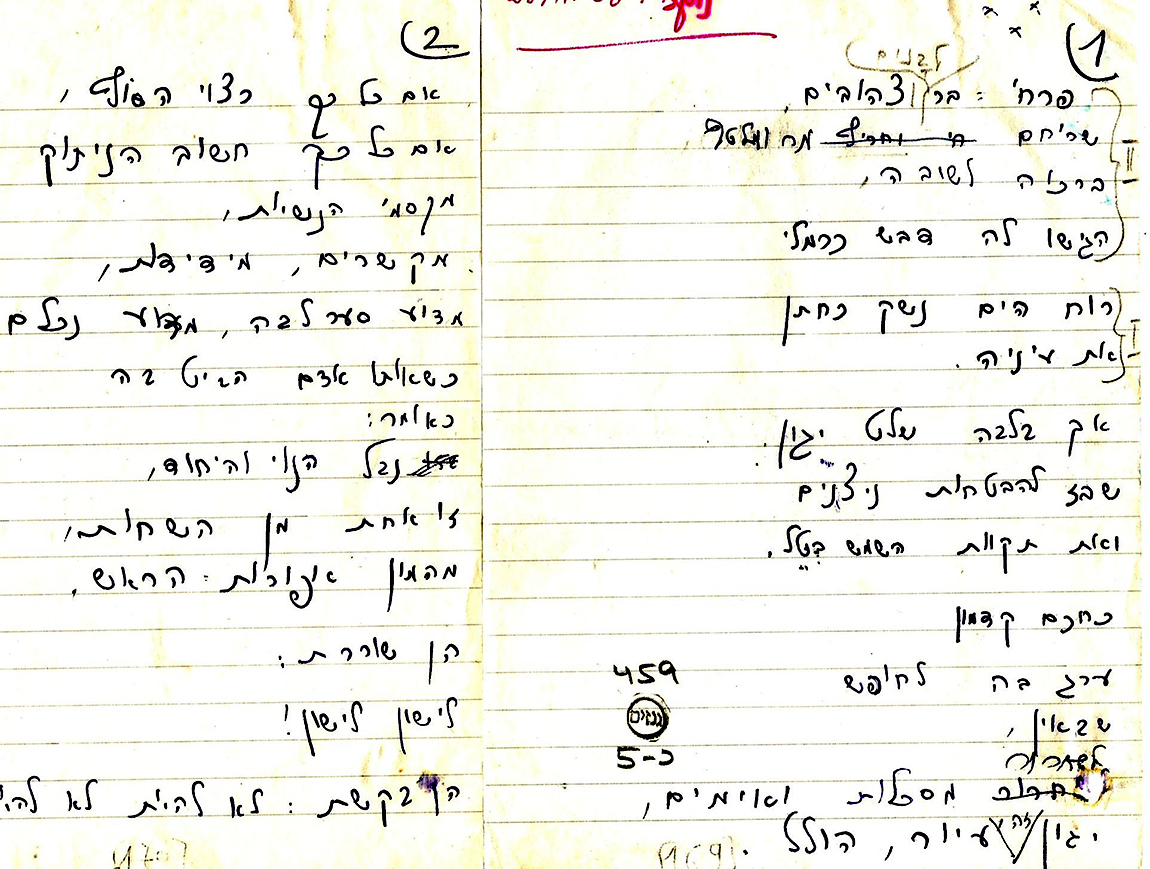 (1
לבנים
פרחי בר צהובים,
שריחם חי וחריף מר ומלטף
ברכוה לשובה,
הגישו לה דבש כרמלי
II
רוח הים נשק כחתן
את עיניה.
I
אך בלבה שלט יגון,
שבז להבטחות ניצנים
ואת תקוות השמש ביטל.
כחכם קדמון
ערג בה לחופש
שבאין,
לשחרור
מסכלות ואוימים,
יגון זה עיור, הולל.
459
גנזים
5-כ
(2
אם כל כך רצוי הסוף,
אם כל כך חשוב הניתוק
מקסמי הנשיות,
מקשרים, מידידות,
מדוע סער לבה, מדוע נכלם
כשאותו אדם הביט בה
כאומר:
נבל הנוי והיחוד,
זו אחת מן השחות,
מהמון אפורות הראש.
הן שוררת:
לישון לישון!
הן בקשת: לא להיות לא